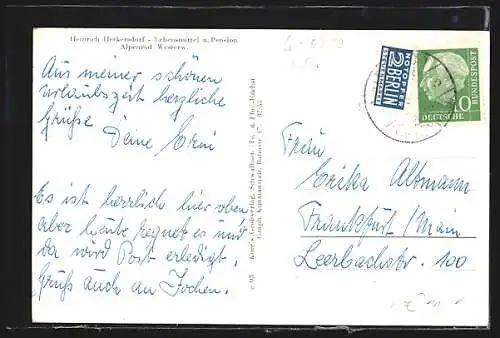 Heinrich Herkersdorf - Lebensmittel u. Pension
Alpenrod Westerw.
Aus meiner schönen
Urlaubszeit herzliche
Grüße
Deine Erni
Es ist herrlich hier oben,
aber heute regnet es und
da wird Post erledigt.
Gruß auch an Jochen.
NOTOPFER
2 BERLIN
STEUERMARKE
10
DEUTSCHE
BUNDESPOST
Frau
Erika Altmann
Frankfurt/Main
Leerbachstr. 100